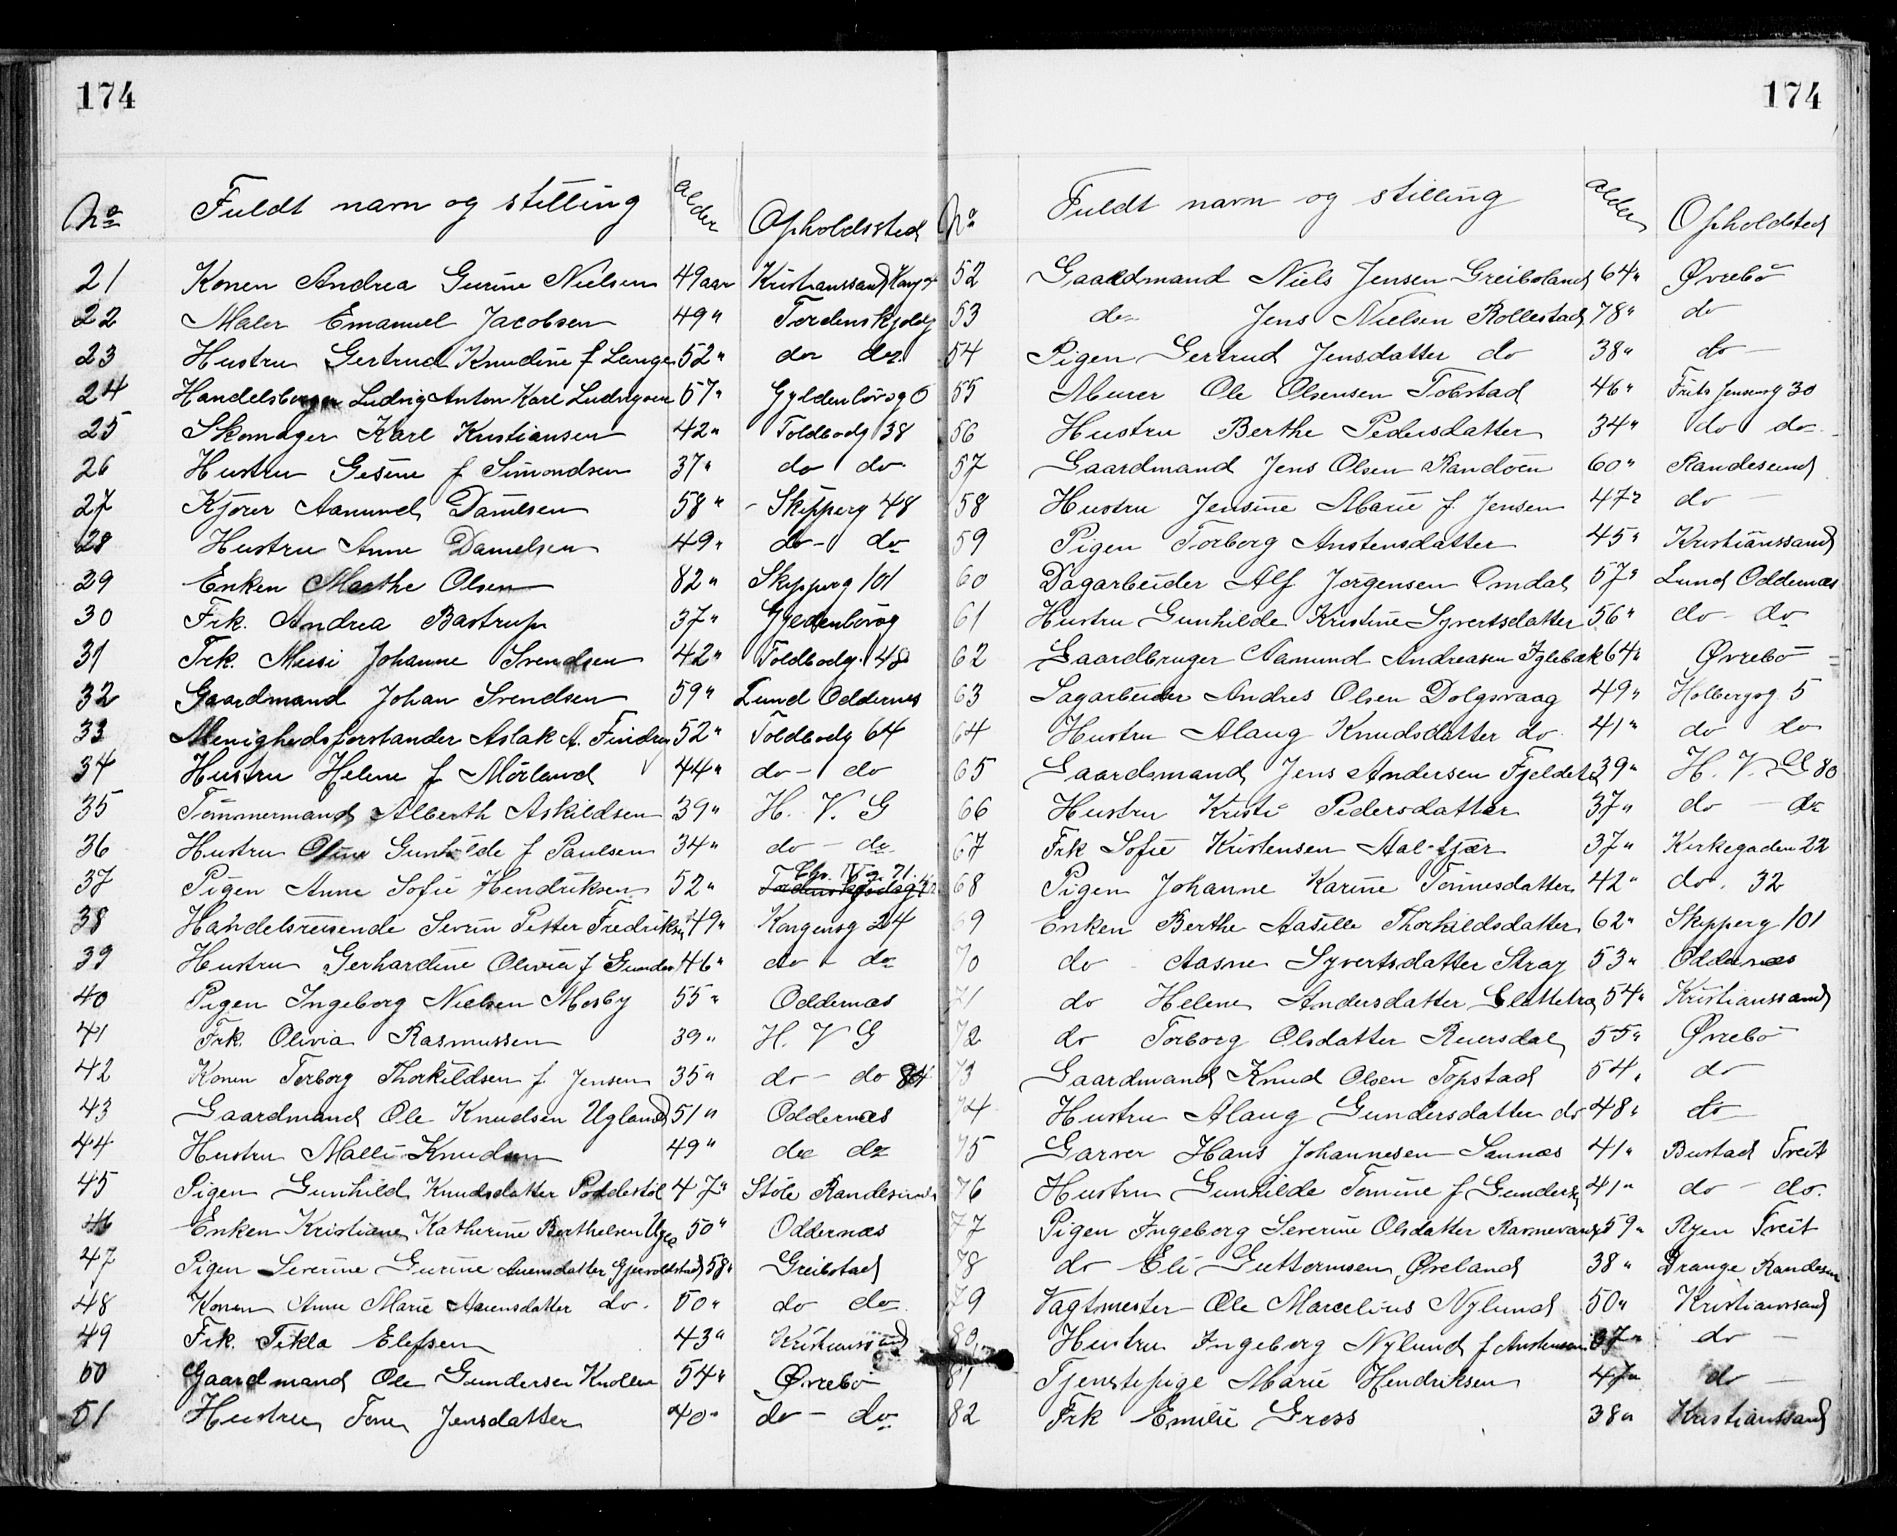 174
No Fuldt navn og stilling alder Opholdssted
21 Konen Andrea Gurine Nielsen 49 aar Kristianssand
22 Maler Emanuel Jacobsen 49 " Tordenskjoldg
23 Hustru Gertrud Knudine f Lange 52 " do do
24 Handelsborger Ludvig Anton Karl Ludvigsen 57 " Gyldenlövsg 6
25 Skomager Karl Kristiansen 42 " Toldbodg 38
26 Hustru Gesine f Simondsen 37 " do do
27 Kjører Aanund Danielsen 58 " - Skipperg 48
28 Hustru Anne Danielsen 49 " do - do
29 Enken Marthe Olsen 82 " Skipperg 101
30 Frk. Andrea Bastrup 37 " Gyldenlövsg
31 Frk. Meisi Johanne Svendsen 42 " Toldbodg. 48
32 Gaardmand Johan Svendsen 59 " Lund Oddernes
33 Menighedsforstander Aslak A. 52 " Toldbodg 64
34 Hustru Helene f Mörland 44 " do - do
35 Tömmermand Alberth Askildsen 39 " H. V. G
36 Hustru Oline Gunhilde f Paulsen 34 " do - do
37 Pigen Anne Sofie Hendriksen 52 " Chr. IV g. 71.
38 Handelsreisende Sevrin Petter Fredriksen 49 " Kongensg 24
39 Hustru Gerhardine Olivia f Gunder 46 " do - do
40 Pigen Ingeborg Nielsen Mosby 55 " Oddernæs
41 Frk. Olivia Rasmussen 39 " H. V G
42 Konen Torborg Thorkildsen f Jensen 35 " do - do 84
43 Gaardmand Ole Knudsen Ugland 51 " Oddernæs
44 Hustru Malli Knudsen 49 " do do
45 Pigen Gunhild Knudsdatter Poddestöl 47 " Stöle Randesund
46 Enken Kristiane Katherine Berthelsen 50 " Oddernæs
47 Pigen Severine Gurine Auensdatter Gjervoldstad 58 " Greibstad
48 Konen Anne Marie Aanensdatter do. 50 " do do
49 Frk. Tekla Elefsen 43 " Kristianssand
50 Gaardmand Ole Gundersen Knollen 54 " Øvrebö
51 Hustru Tone Jensdatter 40 " do - do
174
No Fuldt navn og stilling alder Opholdsted
52 Gaardmand Niels Jensen Greibsland 64 " Øvrebö
53 do Jens Nielsen Rollestad 78 " do
54 Pigen Gertrud Jensdatter do 38 " do -
55 Murer Ole Olsensen Tobstad 46 " Frits Jensensg 30
56 Hustru Berthe Pedersdatter 34 " do do
57 Gaardmand Jens Olsen Randöen 60 " Randesund
58 Hustru Jensine Marie f. Jensen 47 " do
59 Pigen Torborg Austensdatter 45 " Kristianssand
60 Dagarbeider Alf Jørgensen Omdal 57 " Lund Oddernæs
61 Hustru Gunhilde Kristine Syvertsdatter 56 " do - do
62 Gaardbruger Aamund Andreasen Iglebæk 64 " Øvrebö
63 Sagarbeider Andres Olsen Dolgsvaag 49 " Holbergsg 5
64 Hustru Alaug Knudsdatter do 41 " do do
65 Gaardsmand Jens Andersen 39 " H. V. G 80
66 Hustru Kristi Pedersdatter 37 " do - do
67 Frk Sofie Kristensen Aal-kjær 37 " Kirkegaden 22
68 Pigen Johanne Karine Tönnesdatter 42 " do. 32
69 Enken Berthe Aasille Thorkildsdatter 62 " Skipperg 101
70 do Aasne Syvertsdatter Stray 53 " Oddernæs
71 do Helene Andersdatter 54 " Kristianssand
72 do Torborg Olsdatter Reiersdal 55 " Øvrebö
73 Gaardmand Knud Olsen Topstad 54 " do
74 Hustru Alaug Gundersdatter do 48 " do
75 Garver Hans Johannesen Sannæs 41 " Bustad Tveit
76 Hustru Gunhilde Tomine f Gunders 41 " do - do.
77 Pigen Ingeborg Severine Olsdatter 59 " Ryen Tveit
78 do Eli Guttormsen Øveland 38 " Drange Randesun
79 Vagtmester Ole Marcelius Nylund 50 " Kristianssand
80 Hustru Ingeborg Nylund f Austensen 37 " do -
81 Tjenstepige Marie Hendriksen 47 " do -
82 Frk Emilie Gross 38 " Kristianssand